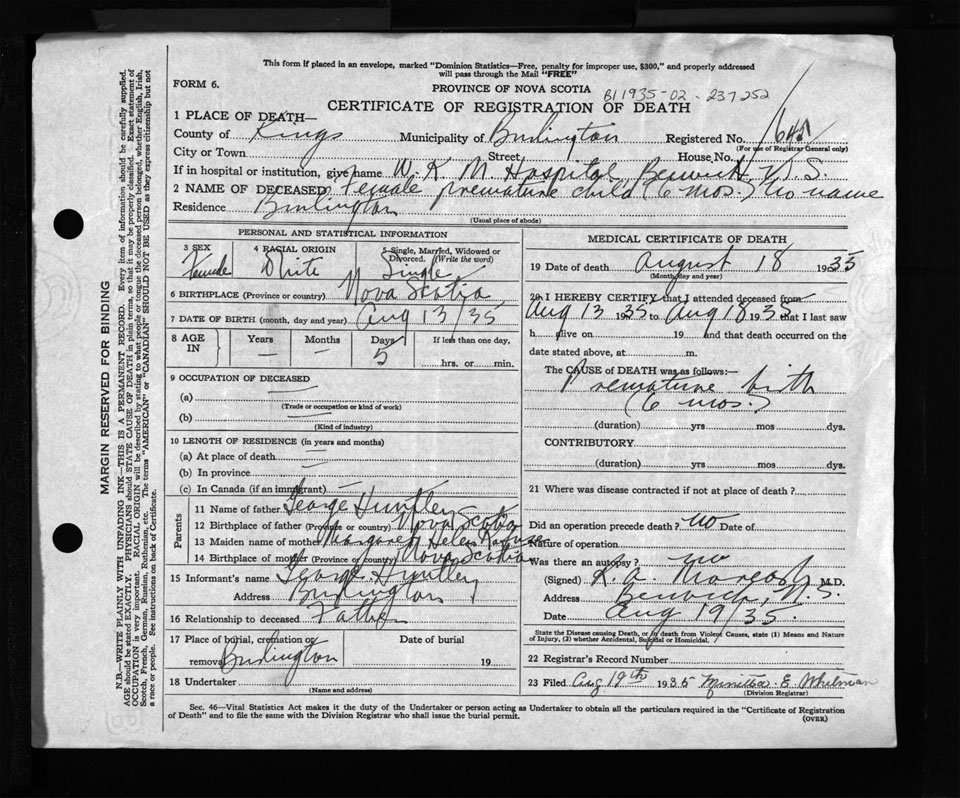 This form if placed in an envelope, marked "Dominion Statistics—Free, penalty for improper use, $300," and properly addressed
will pass through the Mail "FREE"
FORM 6.
PROVINCE OF NOVA SCOTIA
B1 1935-02-237252
CERTIFICATE OF REGISTRATION OF DEATH
1 PLACE OF DEATH—
County of Kings Municipality of Burlington Registered No.
(For use of Registrar General only)
City or Town Street House No.
If in hospital or institution, give name W. K. M. Hospital Berwick N.S.
2 NAME OF DECEASED Female premature child (6 mos.) no name
Residence Burlington
(Usual place of abode)
PERSONAL AND STATISTICAL INFORMATION
3 SEX Female
4 RACIAL ORIGIN White
5 Single, Married, Widowed or Divorced. (Write the word) Single
6 BIRTHPLACE (Province or country) Nova Scotia
7 DATE OF BIRTH (month, day and year) Aug 13/35
8 AGE IN Years — Months — Days 5 If less than one day,
hrs. or min.
9 OCCUPATION OF DECEASED
(a) —
(Trade or occupation or kind of work)
(b) —
(Kind of industry)
10 LENGTH OF RESIDENCE (in years and months)
(a) At place of death —
(b) In province —
(c) In Canada (if an immigrant) —
Parents
11 Name of father George Huntley
12 Birthplace of father (Province or country) Nova Scotia
13 Maiden name of mother Margaret Helen
14 Birthplace of mother (Province or country) Nova Scotia
15 Informant's name George Huntley
Address Burlington
16 Relationship to deceased Father
17 Place of burial, cremation or removal Burlington
Date of burial
19
18 Undertaker
(Name and address)
MEDICAL CERTIFICATE OF DEATH
19 Date of death August 18 1935
(Month, day and year)
20 I HEREBY CERTIFY that I attended deceased from
Aug 13 1935 to Aug 18 1935 that I last saw
h alive on 19 and that death occurred on the
date stated above, at m.
The CAUSE of DEATH was as follows:—
Premature birth
(6 mos.)
(duration) yrs mos dys.
CONTRIBUTORY
(duration) yrs mos dys.
21 Where was disease contracted if not at place of death?
Did an operation precede death? no Date of
Nature of operation
Was there an autopsy? no
(Signed) M.D.
Address Berwick, N.S.
Date Aug 19/35.
State the Disease causing Death, or in death from Violent Causes, state (1) Means and Nature
of Injury, (2) whether Accidental, Suicidal or Homicidal.
22 Registrar's Record Number
23 Filed Aug 19th 1935 E. Whitman
(Division Registrar)
Sec. 46—Vital Statistics Act makes it the duty of the Undertaker or person acting as Undertaker to obtain all the particulars required in the "Certificate of Registration
of Death" and to file the same with the Division Registrar who shall issue the burial permit.
(OVER)
MARGIN RESERVED FOR BINDING
N.B.—WRITE PLAINLY WITH UNFADING INK—THIS IS A PERMANENT RECORD. Every item of information should be carefully supplied.
AGE should be stated EXACTLY. PHYSICIANS should STATE CAUSE OF DEATH in plain terms, so that it may be properly classified. Exact statement of
OCCUPATION is very important. RACIAL ORIGIN will be described by stating to what people or tongue the deceased person belonged, whether English, Irish,
Scotch, French, German, Russian, Ruthenian, etc. The terms "AMERICAN" or "CANADIAN" SHOULD NOT BE USED as they express citizenship but not
a race or people. See instructions on back of Certificate.